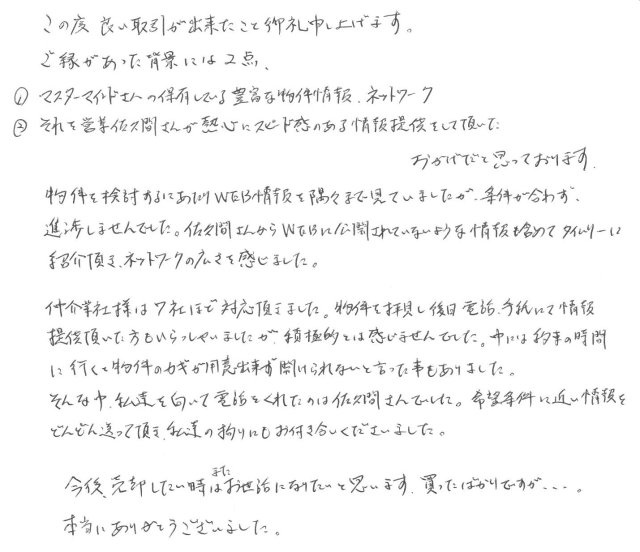 この度 良い取引が出来たこと御礼申し上げます。
ご縁があった背景には2点、
① マスターマインドさんの保有している豊富な物件情報、ネットワーク
② それを営業佐久間さんが熱心にスピード感のある情報提供をして頂いた
おかげだと思っております。
物件を検討するにあたりWEB情報を隅々まで見ていましたが、条件が合わず、
進渉しませんでした。佐久間さんからWEBに公開されていないような情報も含めてタイムリーに
紹介頂き、ネットワークの広さを感じました。
仲介業社様は7社ほど対応頂きました。物件を拝見し後日電話、手紙にて情報
提供頂いた方もいらっしゃいましたが、積極的とは感じませんでした。中には約束の時間
に行くと物件のカギが用意出来ず開けられないと言った事もありました。
そんな中、私達を向いて電話をくれたのは佐久間さんでした。希望条件に近い情報を
どんどん送って頂き、私達の拘りにもお付き合いくださいました。
今後、売却したい時はまたお世話になりたいと思います。買ったばかりですが、、、。
本当にありがとうございました。